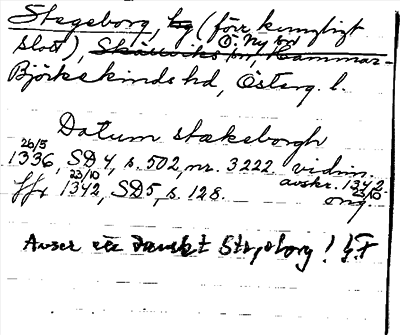 Stegeborg, hg (förr kungligt
slott), Skällviks sn, Ö. Ny sn Hammar-
Björkekinds hd, Österg. l.
Datum stækeborgh
26/5 1336, SD 4, s. 502, nr. 3222 vidim. avskr. 1342 23/10
ffr 23/10 1342, SD 5, s. 128. orig.
Avser ett danskt Stegeborg! G.F